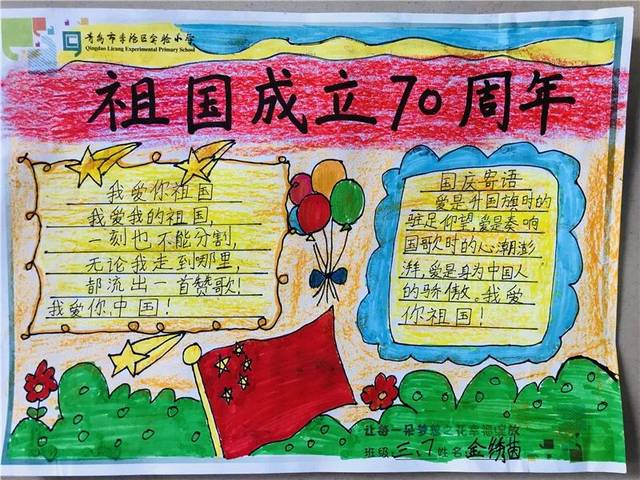 青岛市李沧区实验小学
Qingdao Licang Experimental Primary School
祖国成立70周年
我爱你祖国
我爱我的祖国,
一刻也不能分割,
无论我走到哪里,
都流出一首赞歌!
我爱你,中国!
国庆寄语
爱是升国旗时的
驻足仰望,爱是奏响
国歌时的心潮澎
湃,爱是身为中国人
的骄傲。我爱
你祖国!
让每一朵梦想之花幸福绽放
班级:三、7 姓名:金